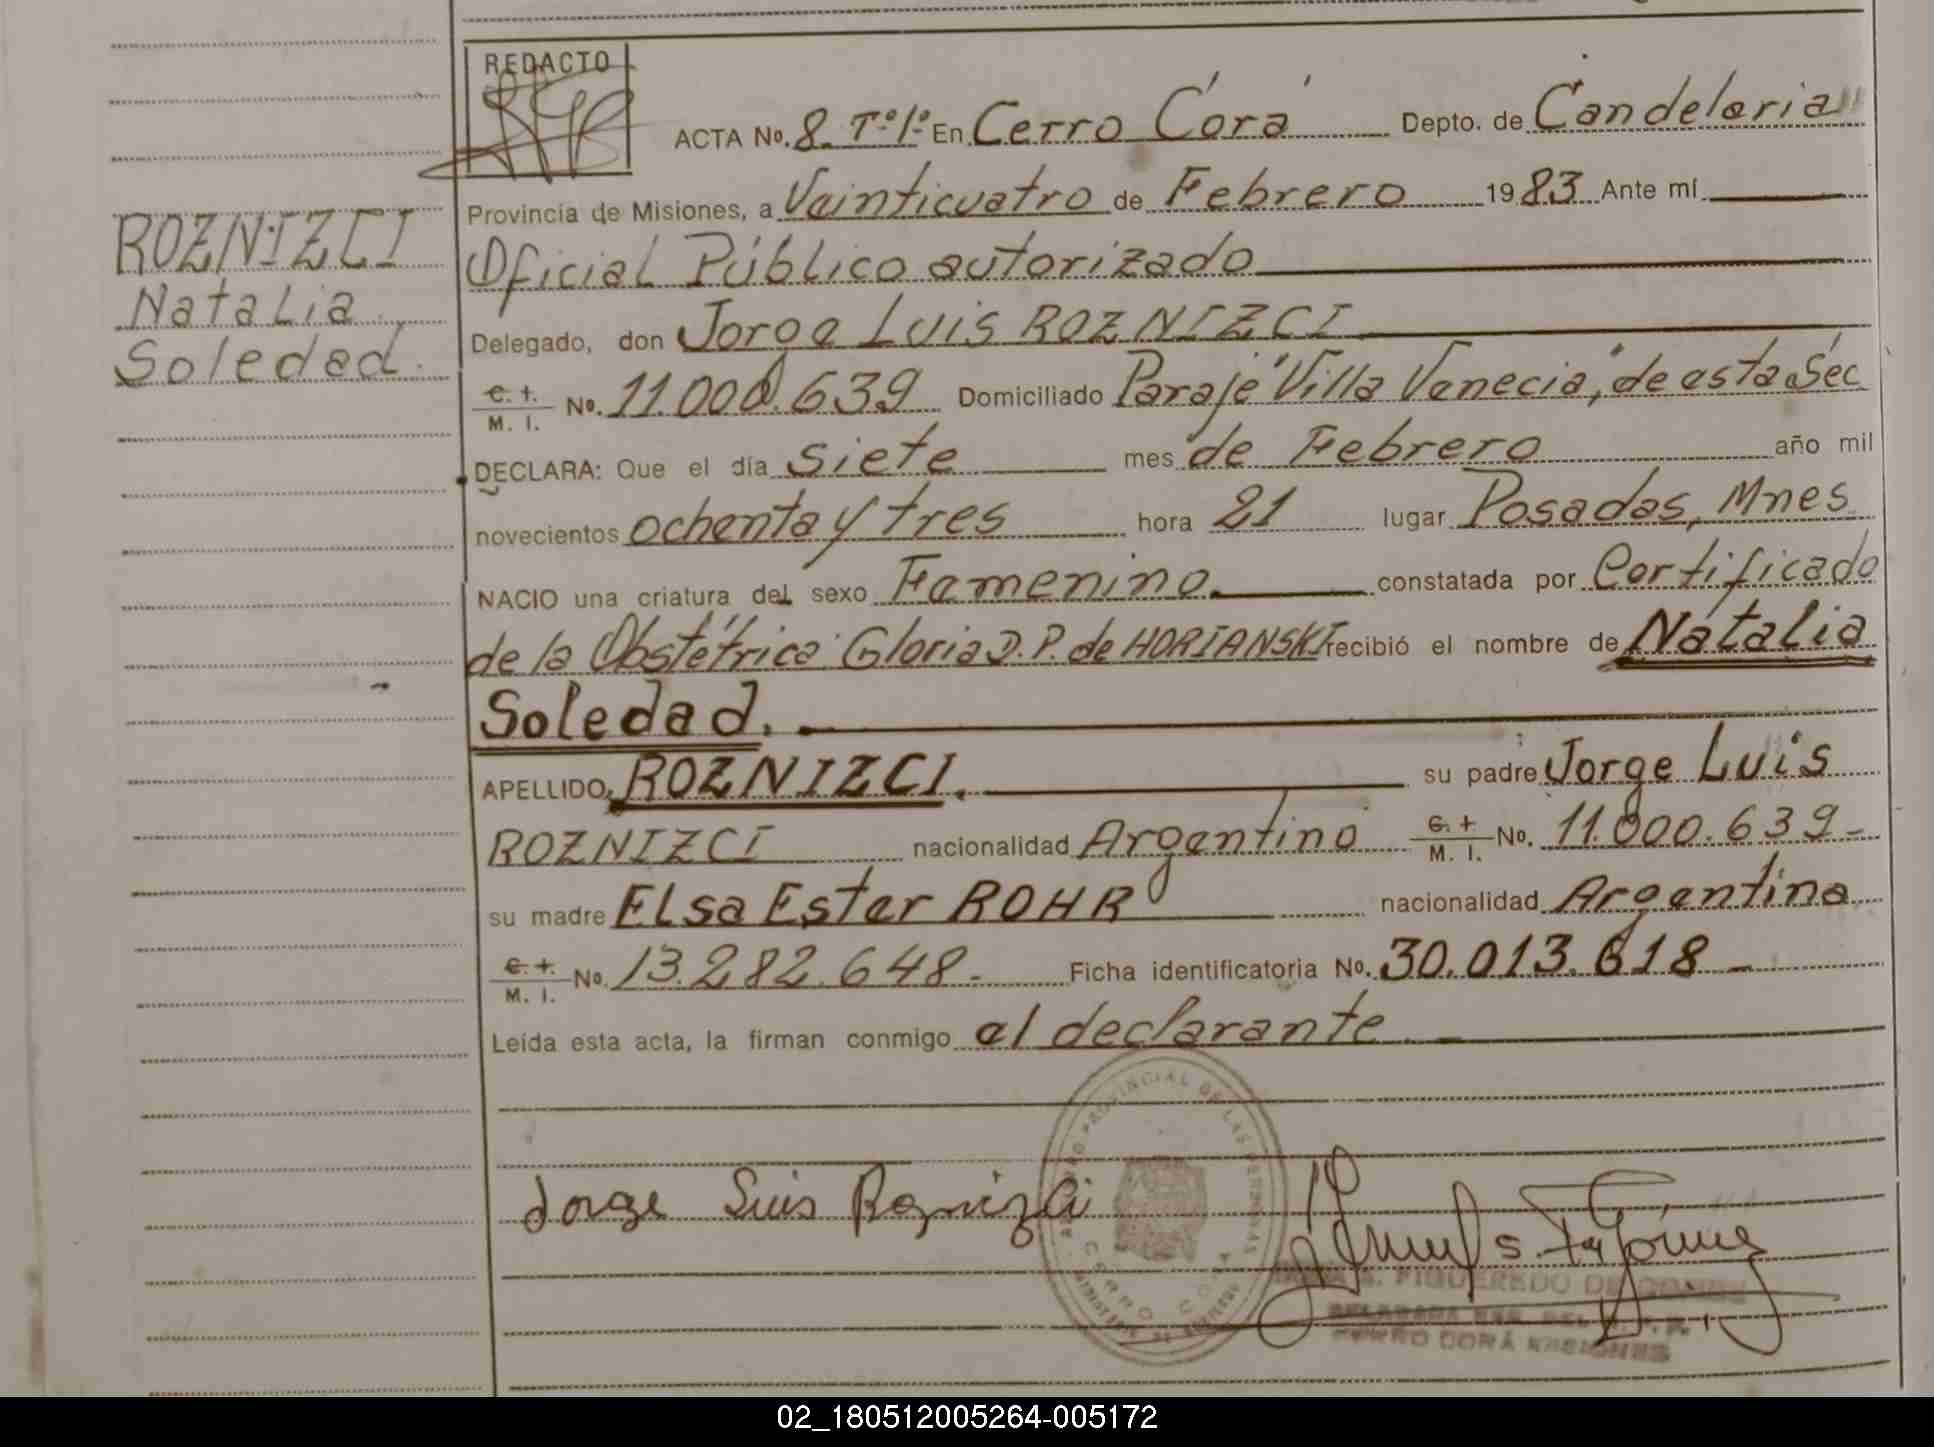 REDACTO
ACTA No. 8 Tº 1º En Cerro Corá Depto. de Candelaria
Provincia de Misiones, a Veinticuatro de Febrero 1983 Ante mí
Oficial Público autorizado
ROZNIZCI
Natalia
Soledad.
Delegado, don Jorge Luis ROZNIZCI
C. I. M. I. No. 11.000.639 Domiciliado Paraje "Villa Venecia", de esta Sec
DECLARA: Que el día siete mes de Febrero año mil
novecientos ochenta y tres hora 21 lugar Posadas, Mnes
NACIO una criatura del sexo Femenino. constatada por Certificado
de la Obstétrica Gloria D. P. de HORIANSKI recibió el nombre de Natalia
Soledad.
APELLIDO ROZNIZCI. su padre Jorge Luis
ROZNIZCI nacionalidad Argentino C. I. M. I. No. 11.000.639-
su madre Elsa Ester ROHR nacionalidad Argentina
C. I. M. I. No. 13.282.648.- Ficha identificatoria No. 30.013.618-
Leída esta acta, la firman conmigo el declarante.-
Jorge Luis Roznizci
CERRO CORA
S. FIGUEREDO DE
CERRO CORÁ MISIONES
02_180512005264-005172